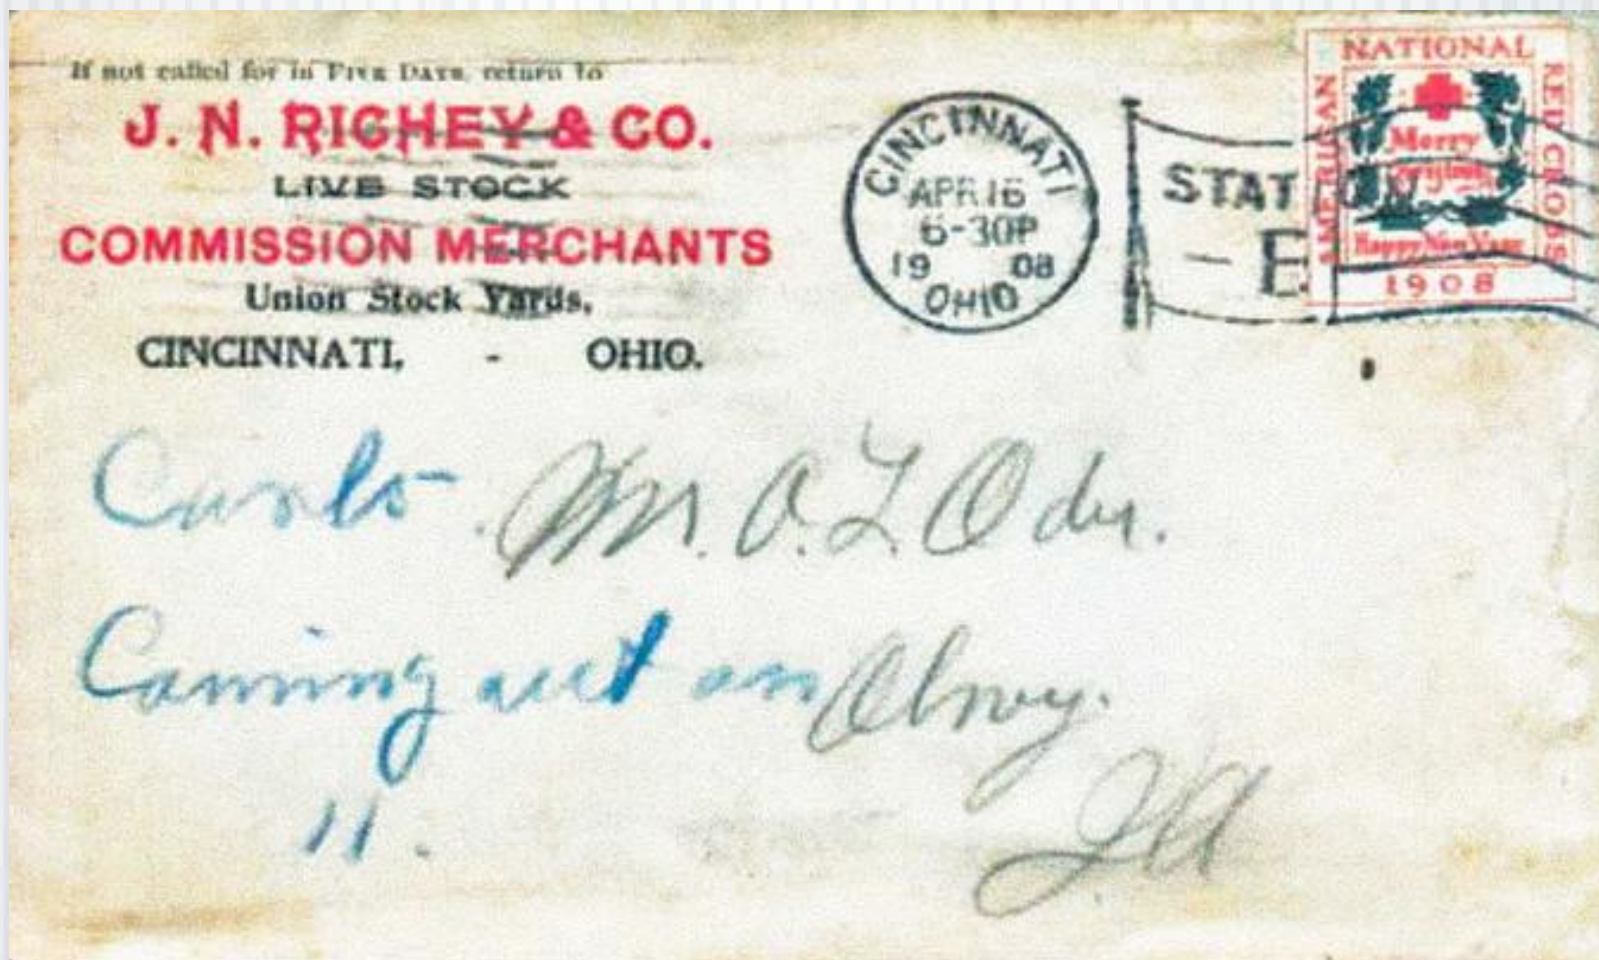 If not called for in FIVE DAYS, return to
J. N. RICHEY & CO.
LIVE STOCK
COMMISSION MERCHANTS
Union Stock Yards,
CINCINNATI, - OHIO.
CINCINNATI
APR 16
6-30P
1908
OHIO
STATION
- E
NATIONAL
AMERICAN
RED CROSS
Merry
Christmas
Happy New Year
1908
Mr. O. L. Oder.
Coming out on
11.